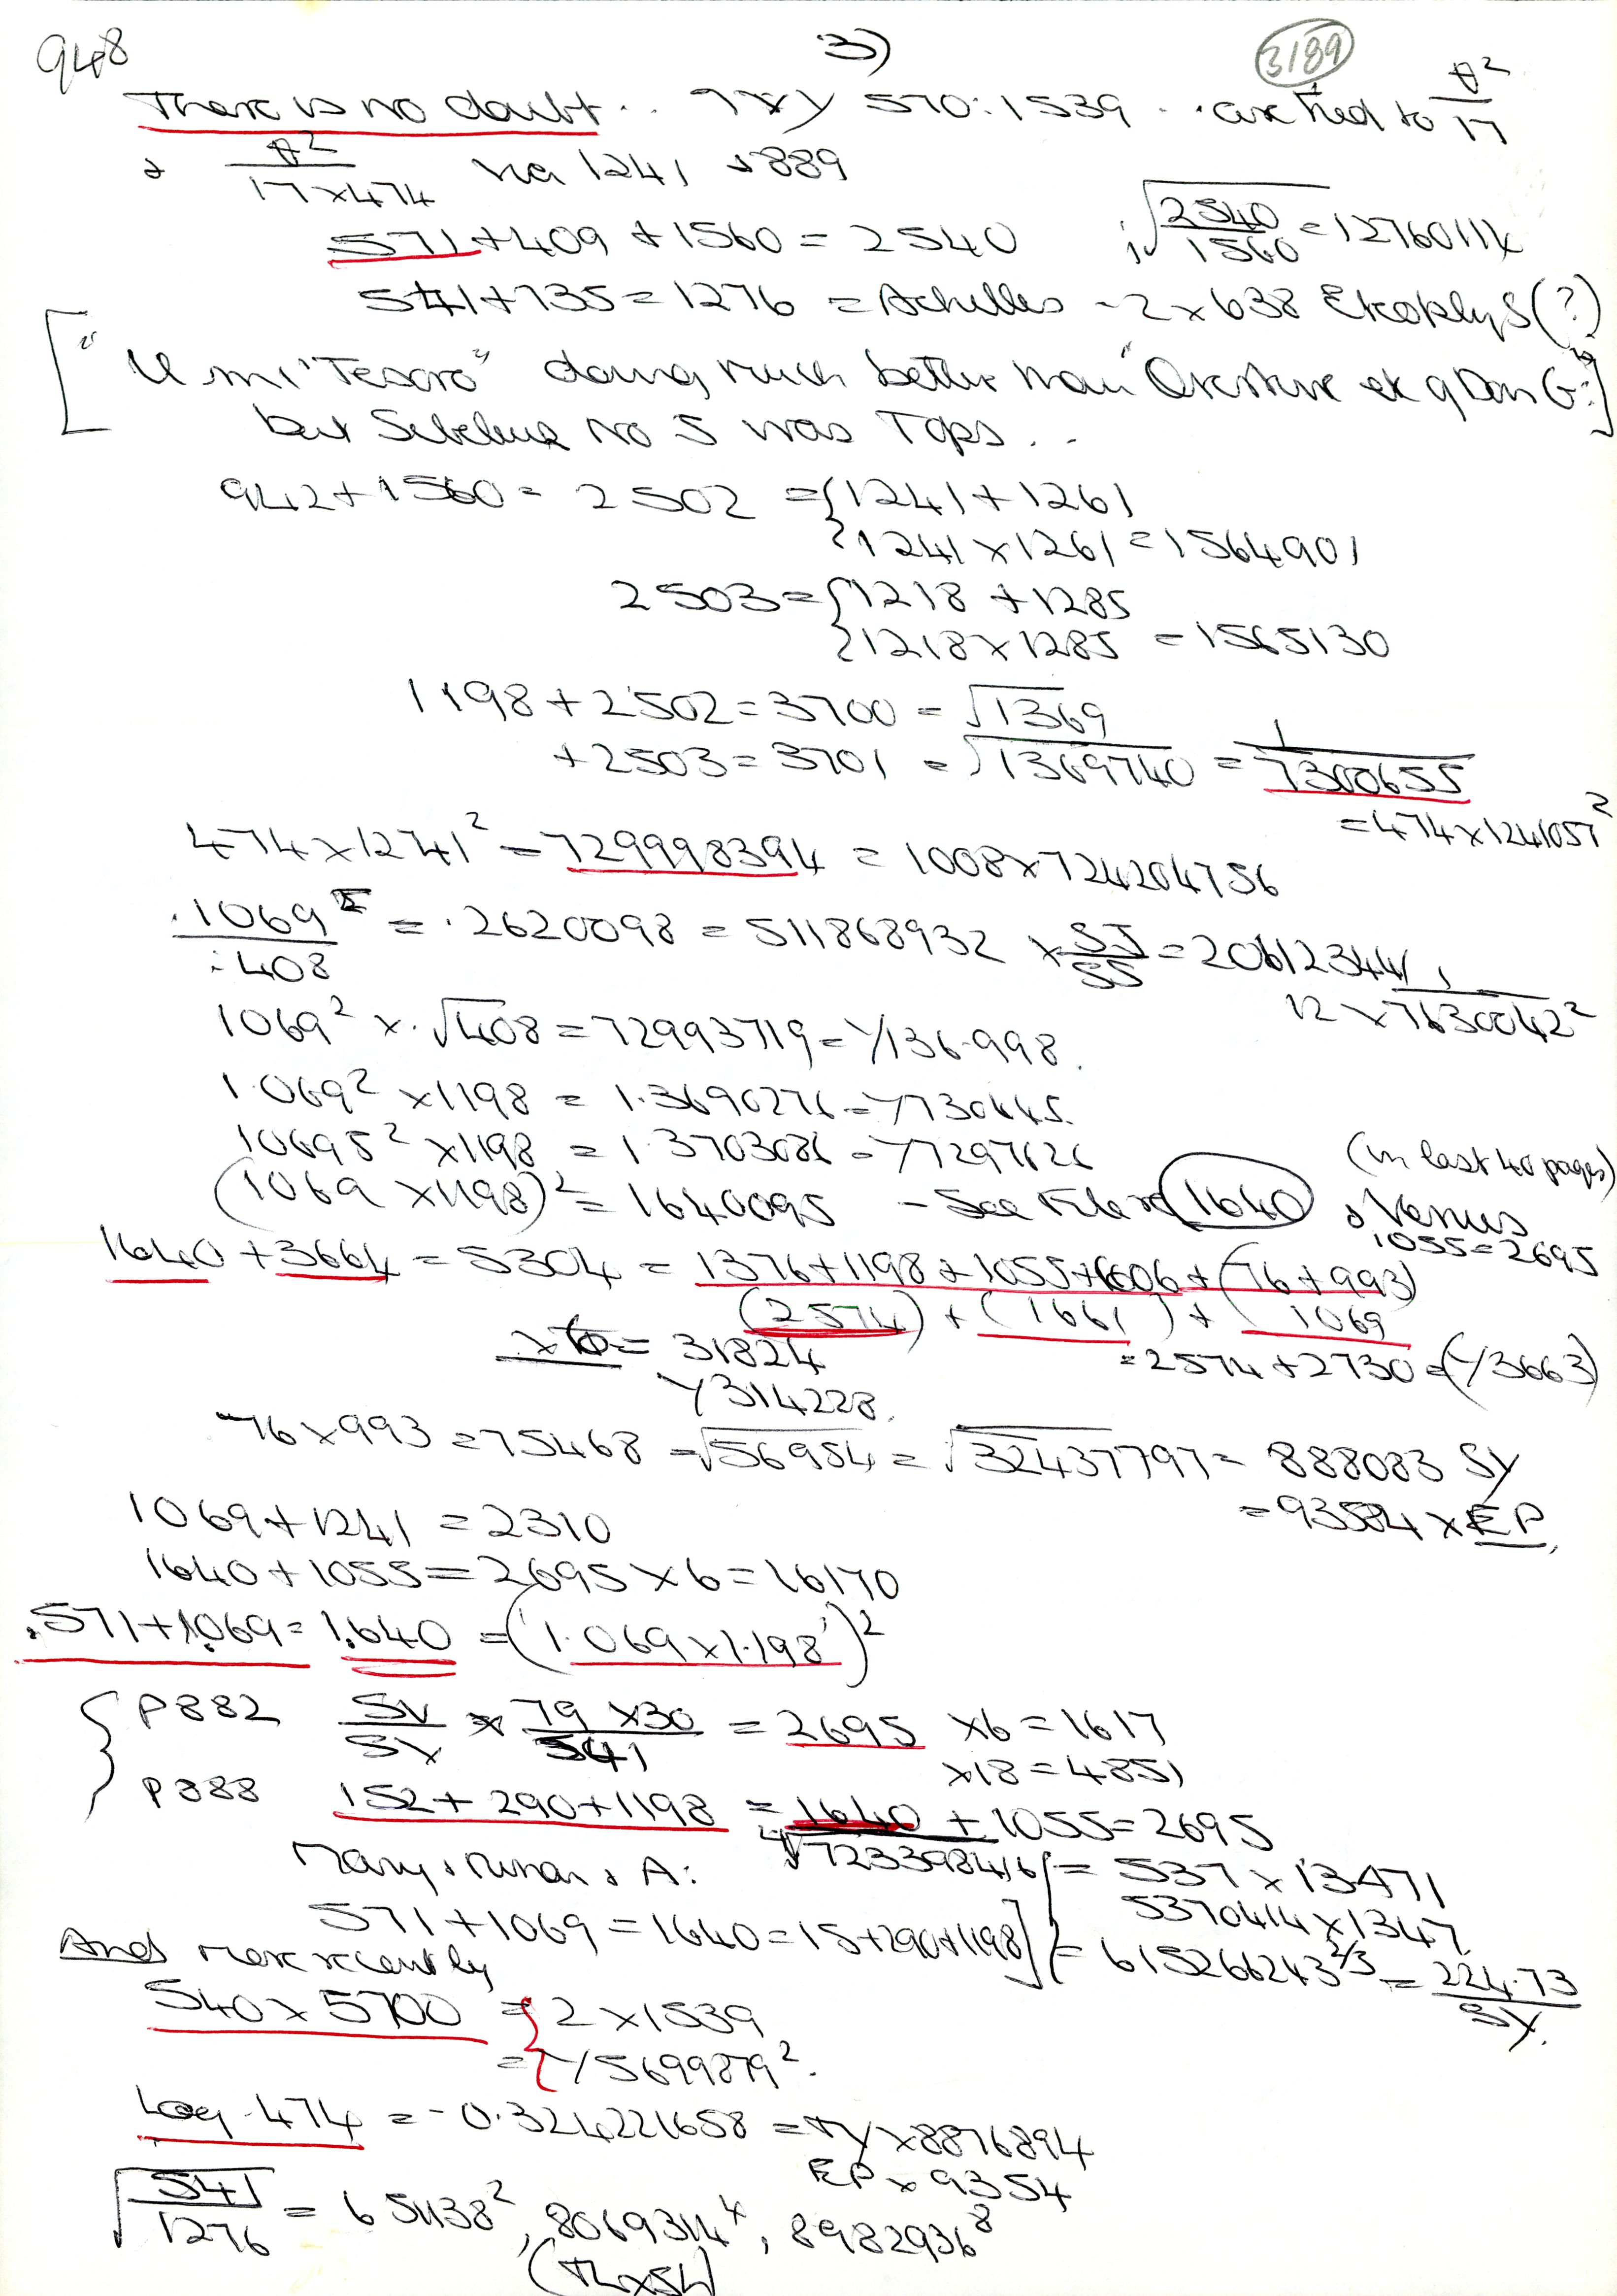 948
3)
3189
There is no doubt .. 570:1539 .. are tied to θ²/17
θ²/17×474 via 1241 + 889
571+409+1560=2540 √2540/1560=1276011
541+735=1276=Achilles -2×638 (?)
["Il mi Tesoro" doing much better than "Overture of Don G:"]
but Sibelius No 5 was Tops..
942+1560=2502={1241+1261
{1241×1261=1564901
2503={1218+1285
{1218×1285=1565130
1198+2502=3700=√1369
+2503=3701=√1369740=1/7300655
=474×1241057²
474×1241²=729998394=1008×724204756
.1069²/.408=.2620098=511868932×SJ/SS=20612344
1/12×7630042²
1069²×.√408=72993719=1/136.998
1.069²×1198=1.3690276=1/730445
10695²×1198=1.3703086=1/7297626
(1069×1198)²=1640095 - See 1640 & Venus
(in last 40 pages)
1055=2695
1640+3664=5304=1376+1198+1055+606+(76+993)
(2574)+(1661)+(1069
×6=31824
=2574+2730=(1/3663)
1/314228
76×993=75468=√56954=√32437797=888083 SY
=93584×EP
1069+1241=2310
1640+1055=2695×6=16170
.571+1.069=1.640=(1.069×1.198)²
{P882 SV/SY×79×30/541=2695 ×6=1617
×18=4851
P888 152+290+1198=1640+1055=2695
Mary, & A:
⁴√723398416=537×13471
5370414×1347
571+1069=1640=15+290+1198]=615266243^2/3=224.73/SY.
And more recently
540×5700={2×1539
={1/5699879².
Log .474=-0.324221658= ×8876894
EP×9354
√541/1276=651138², 8069314⁴, 8982936⁸